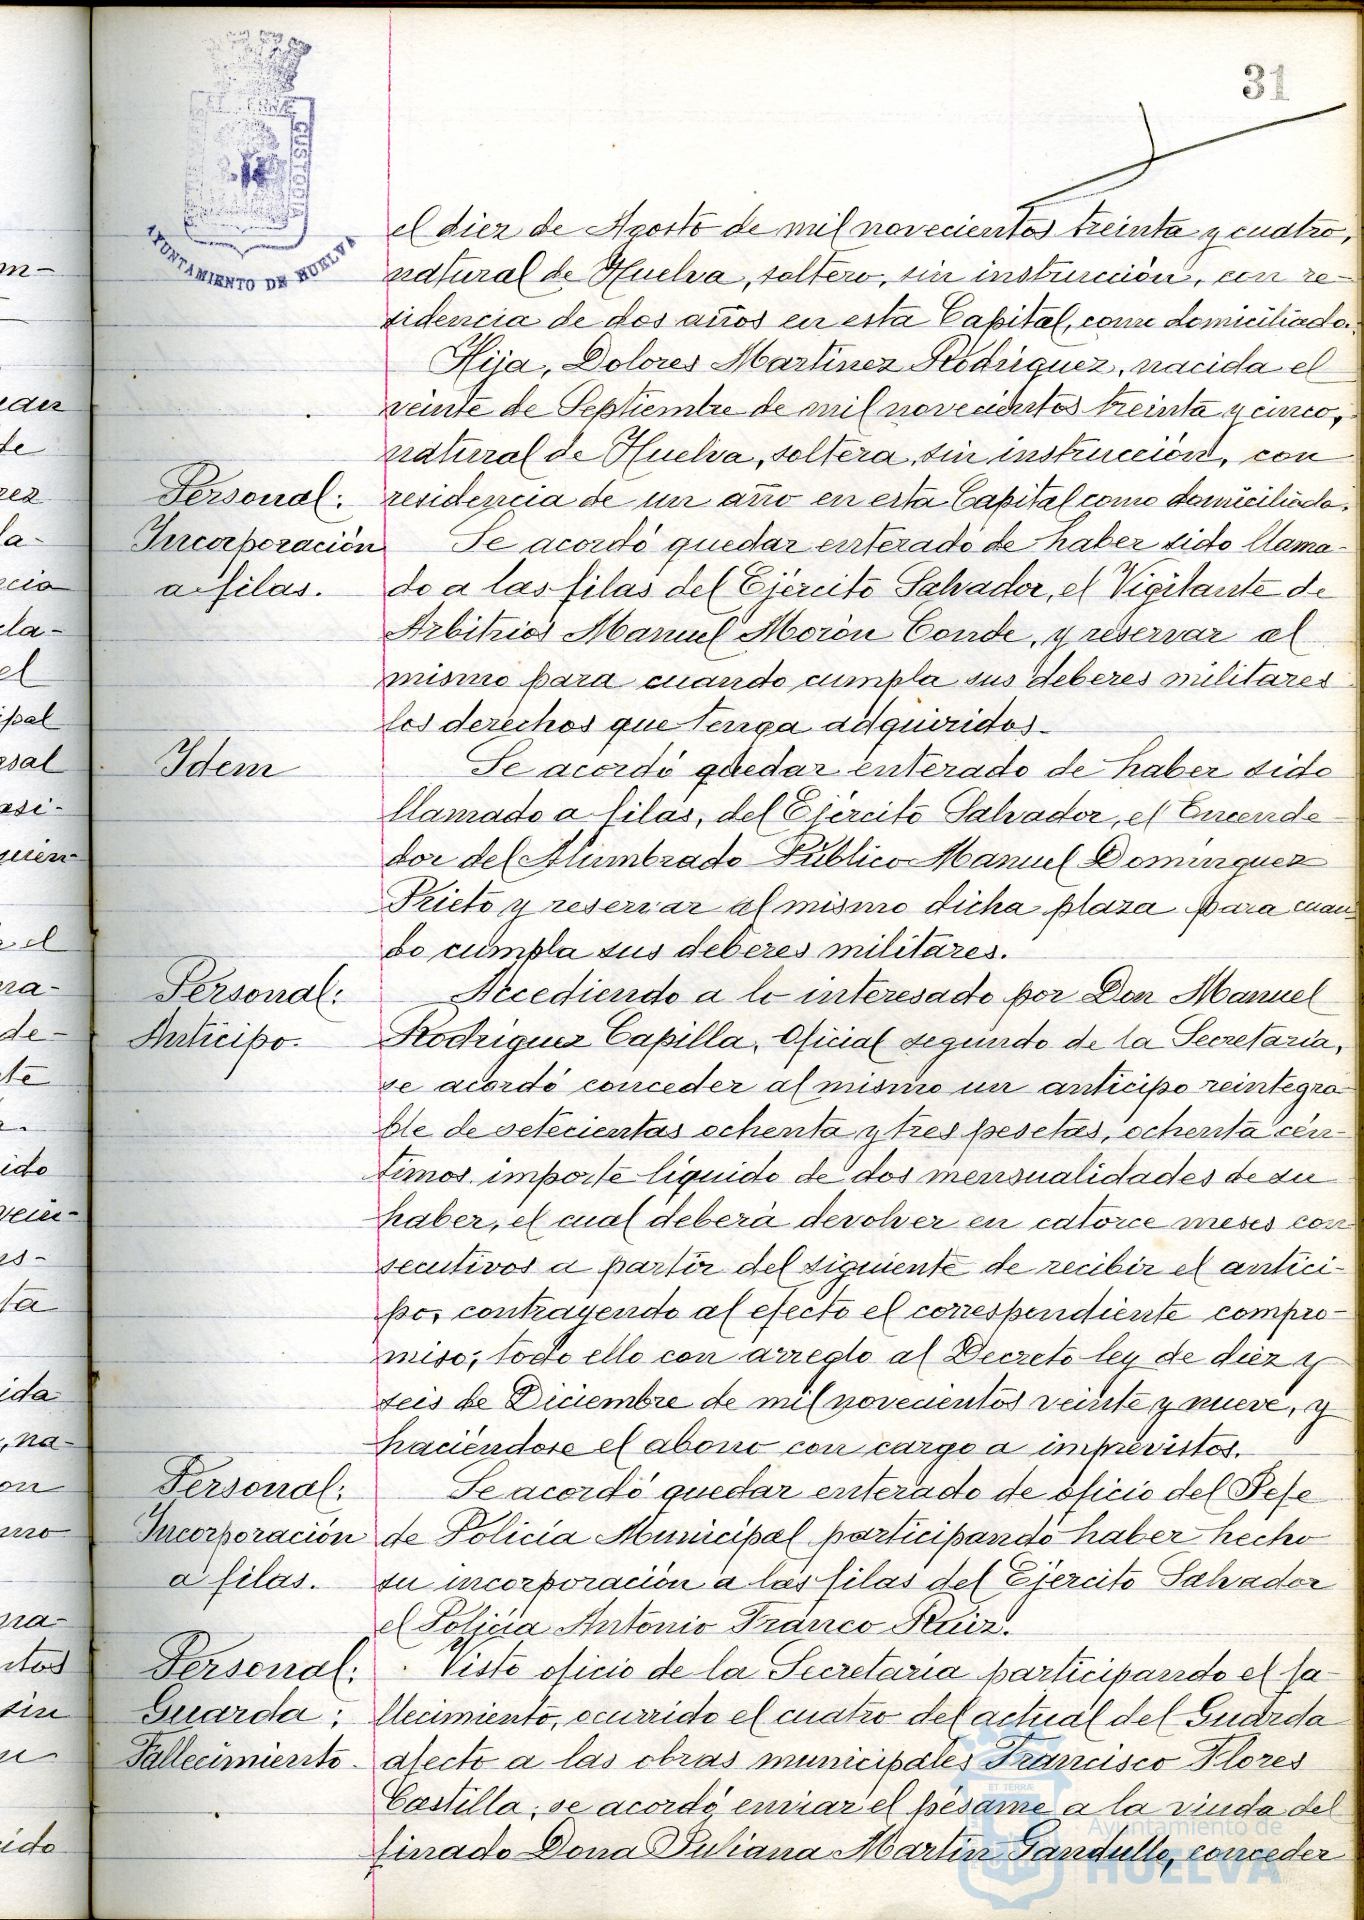 31
ET TERRÆ CUSTODIA
AYUNTAMIENTO DE HUELVA
el diez de Agosto de mil novecientos treinta y cuatro,
natural de Huelva, soltero, sin instrucción, con re-
sidencia de dos años en esta Capital, como domiciliado.
Hija, Dolores Martínez Rodríguez, nacida el
veinte de Septiembre de mil novecientos treinta y cinco,
natural de Huelva, soltera, sin instrucción, con
residencia de un año en esta Capital como domiciliada.
Personal:
Incorporación
a filas.
Se acordó quedar enterado de haber sido llama-
do a las filas del Ejército Salvador, el Vigilante de
Arbitrios Manuel Morón Conde, y reservar al
mismo para cuando cumpla sus deberes militares
los derechos que tenga adquiridos.
Idem
Se acordó quedar enterado de haber sido
llamado a filas, del Ejército Salvador, el Encende-
dor del Alumbrado Público Manuel Domínguez
Prieto y reservar al mismo dicha plaza para cuan-
do cumpla sus deberes militares.
Personal:
Anticipo.
Accediendo a lo interesado por Don Manuel
Rodríguez Capilla, Oficial segundo de la Secretaría,
se acordó conceder al mismo un anticipo reintegra-
ble de setecientas ochenta y tres pesetas, ochenta cén-
timos importe líquido de dos mensualidades de su
haber, el cual deberá devolver en catorce meses con-
secutivos a partir del siguiente de recibir el antici-
po, contrayendo al efecto el correspondiente compro-
miso; todo ello con arreglo al Decreto ley de diez y
seis de Diciembre de mil novecientos veinte y nueve, y
haciéndose el abono con cargo a imprevistos.
Personal:
Incorporación
a filas.
Se acordó quedar enterado de oficio del Jefe
de Policía Municipal participando haber hecho
su incorporación a las filas del Ejército Salvador
el Policía Antonio Franco Ruiz.
Personal:
Guarda:
Fallecimiento.
Visto oficio de la Secretaría participando el fa-
llecimiento, ocurrido el cuatro del actual del Guarda
afecto a las obras municipales Francisco Flores
Castilla; se acordó enviar el pésame a la viuda del
finado Dona Juliana Martín Gandullo, conceder
Ayuntamiento de
HUELVA